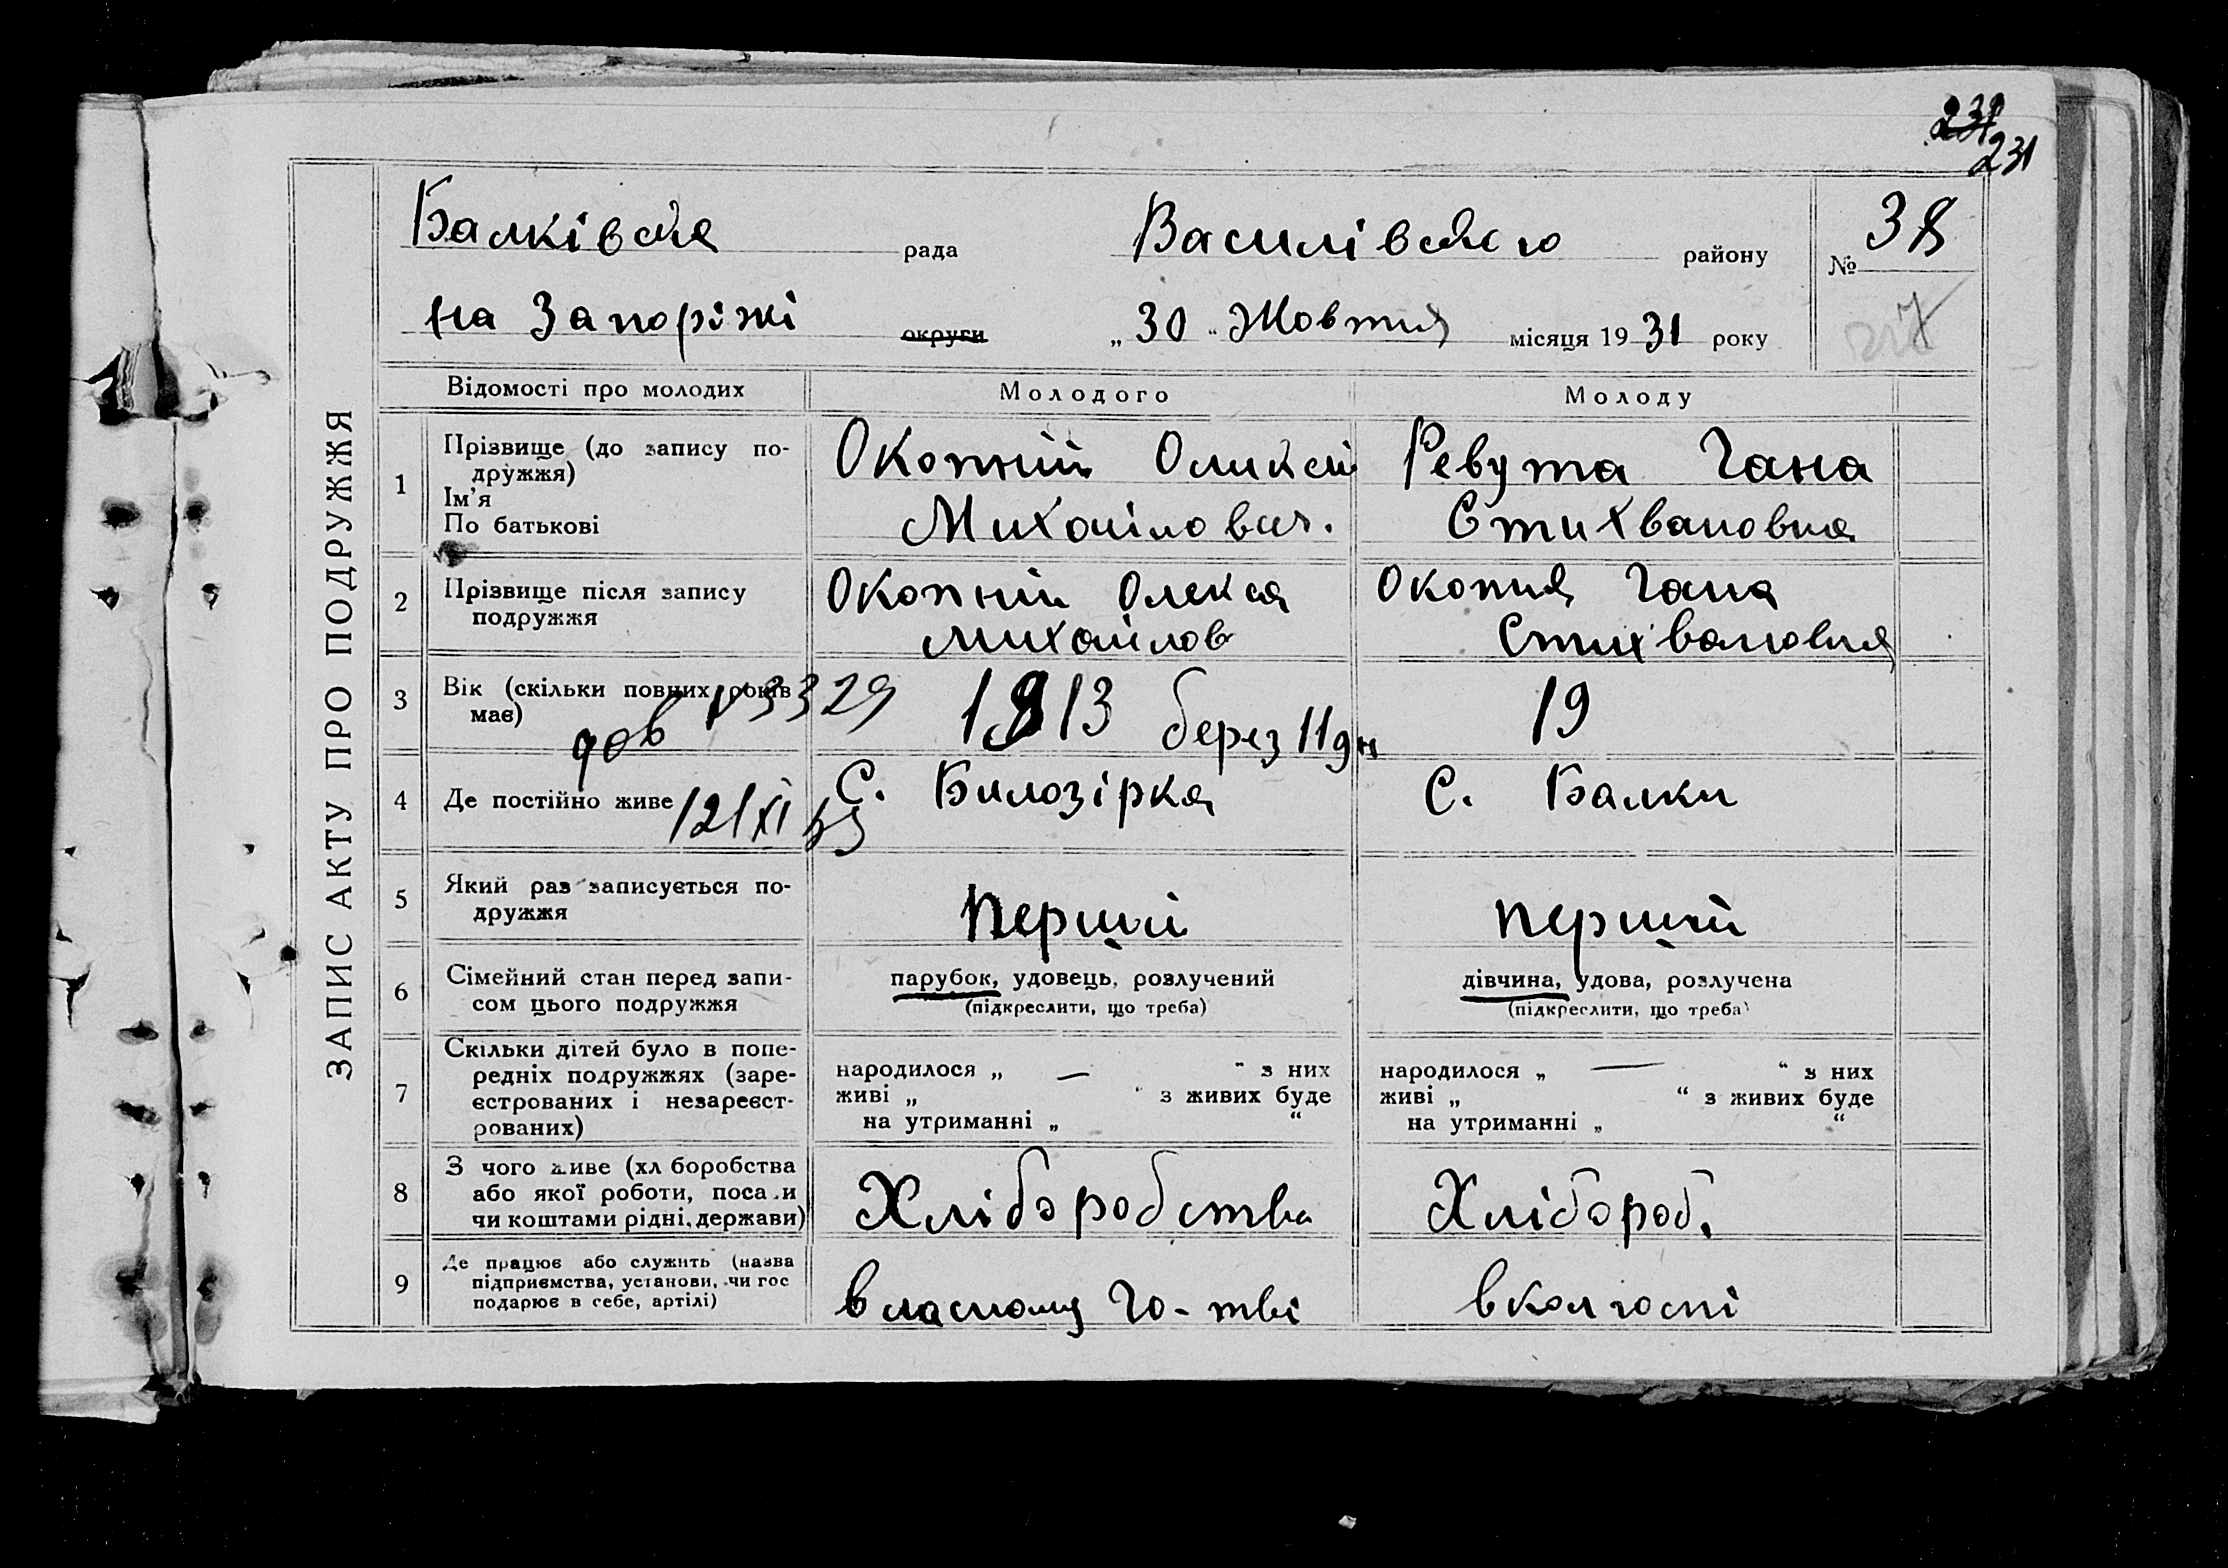 231
231
Балківська рада Василівського району № 38
на Запоріжі округи „ 30 " Жовтня місяця 19 31 року
ЗАПИС АКТУ ПРО ПОДРУЖЖЯ
Відомості про молодих Молодого Молоду
1 Прізвище (до запису по-
дружжя)
Ім'я
По батькові
Окопній Оликсій
Михайлович.
Ревута Гана
Стихвановна
2 Прізвище після запису
подружжя
Окопній Олекса
Михайлов
Окопня Гана
Стихвановня
3 Вік (скільки повних років
має)
1913 берез 11 дн
19
дов № 3329
12/XI
4 Де постійно живе
С. Билозірка
С. Балки
5 Який раз записується по-
дружжя
Перший
перший
6 Сімейний стан перед запи-
сом цього подружжя
парубок, удовець, розлучений
(підкреслити, що треба)
дівчина, удова, розлучена
(підкреслити, що треба)
7 Скільки дітей було в попе-
редніх подружжях (заре-
єстрованих і незареєст-
рованих)
народилося „ — " з них
живі „ " з живих буде
на утриманні „ "
народилося „ — " з них
живі „ " з живих буде
на утриманні „ "
8 З чого живе (хліборобства
або якої роботи, посади
чи коштами рідні, держави)
Хліборобства
Хлібороб.
9 Де працює або служить (назва
підприємства, установи, чи гос
подарює в себе, артілі)
власному го-тві
в колгоспі